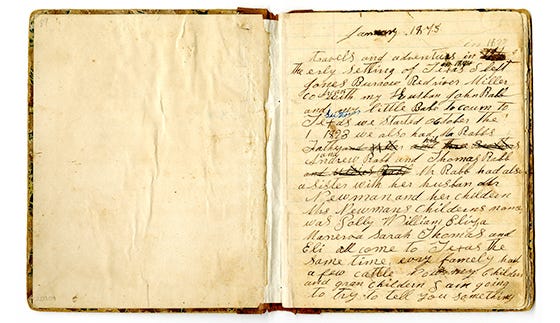 January 1875
travels and adventurs in
the erly setling of Texas I left
Jones Burow Redriver Miller
Co with my husban John Rabb
and my little Babe to come to
Texas we started October the
1 1823 we also had Mr Rabbs
Father
Andrew Rabb and Thomas Rabb
Mr Rabb had also
a sister with her husban
Newman and her children
Mrs Newmans Childrens name
was Polly William Eliza
Manerva Sarah Thomas and
Eli all come to Texas the
same time evry famely had
a few cattle my children
and gran children I am going
to try to tell you something